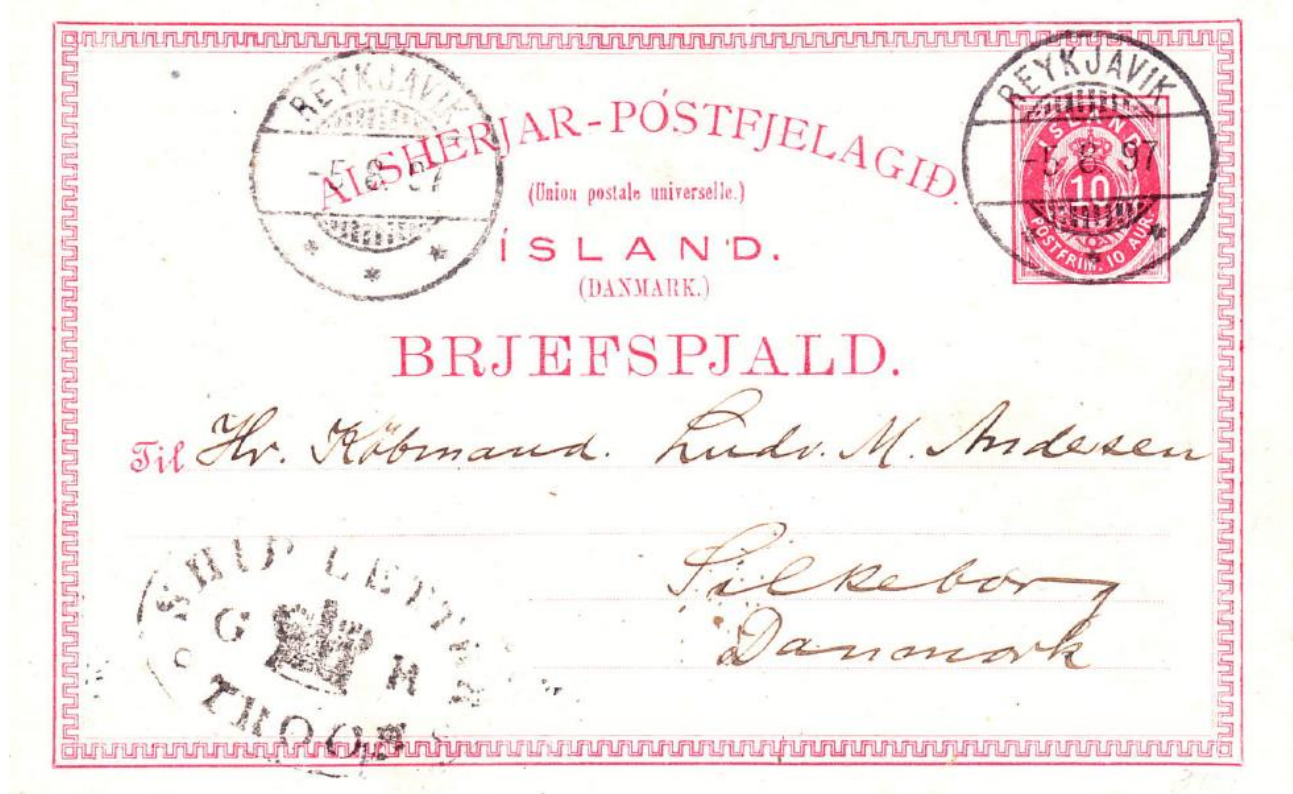 REYKJAVIK
-5 8 97
REYKJAVIK
-5 8 97
ALSHERJAR-PÓSTFJELAGIÐ.
(Union postale universelle.)
ÍSLAND.
(DANMARK.)
ISLAND
10
POSTFRIM. 10 AUR.
BRJEFSPJALD.
Til Hr. Købmand. Ludv. M. Andersen
Silkeborg
Danmark
SHIP LETTER
G R
TROON